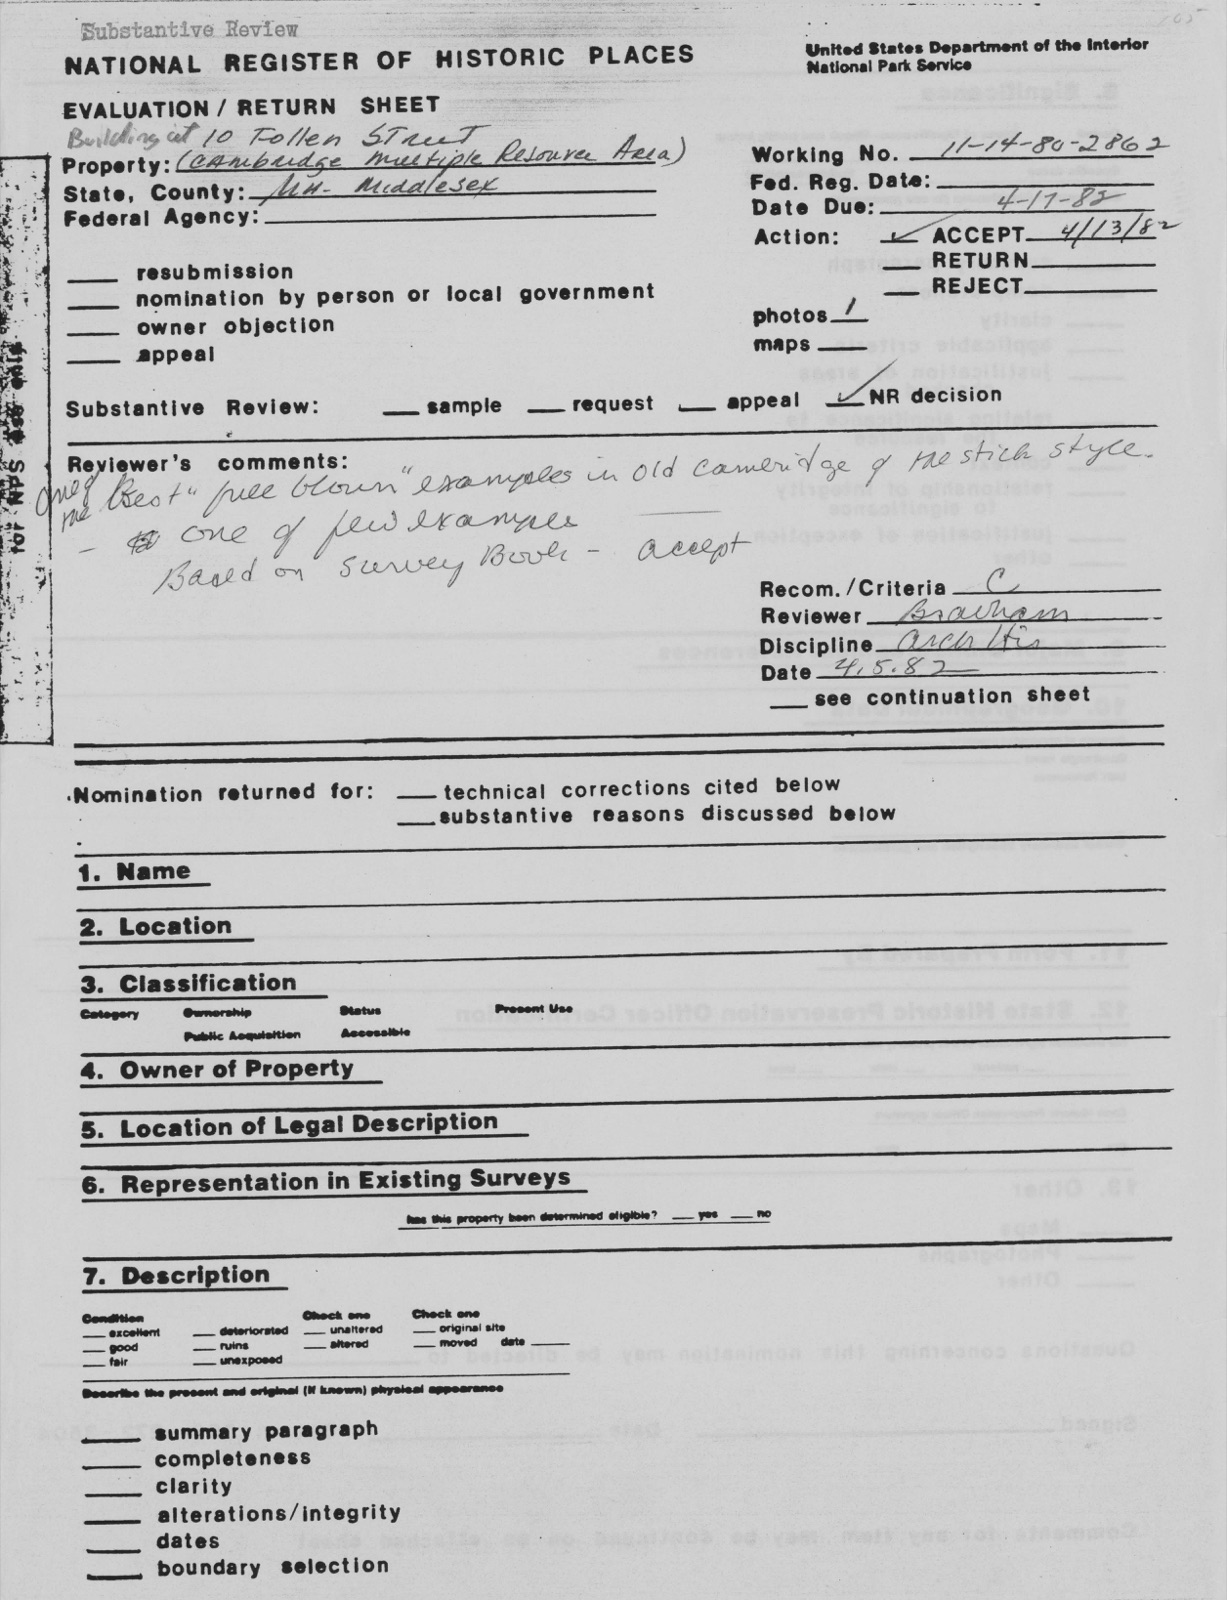 Substantive Review
NATIONAL REGISTER OF HISTORIC PLACES
United States Department of the Interior
National Park Service
EVALUATION / RETURN SHEET
Building at 10 Follen Street
Property: (Cambridge Multiple Resource Area)
State, County: MA- Middlesex
Federal Agency:
Working No. 11-14-80-2862
Fed. Reg. Date:
Date Due: 4-17-82
Action: ✓ ACCEPT 4/13/82
RETURN
REJECT
resubmission
nomination by person or local government
owner objection
appeal
photos 1
maps
Substantive Review: sample request appeal ✓ NR decision
for NPS use only
Reviewer's comments:
one of the Best "full blown" examples in Old Cambridge of the stick style.
- one of few examples
Based on Survey Book - accept
Recom. / Criteria C
Reviewer
Discipline Arch His
Date 4.5.82
see continuation sheet
Nomination returned for: technical corrections cited below
substantive reasons discussed below
1. Name
2. Location
3. Classification
Category Ownership Status Present Use
Public Acquisition Accessible
4. Owner of Property
5. Location of Legal Description
6. Representation in Existing Surveys
has this property been determined eligible? yes no
7. Description
Condition Check one Check one
excellent deteriorated unaltered original site
good ruins altered moved date
fair unexposed
Describe the present and original (if known) physical appearance
summary paragraph
completeness
clarity
alterations/integrity
dates
boundary selection